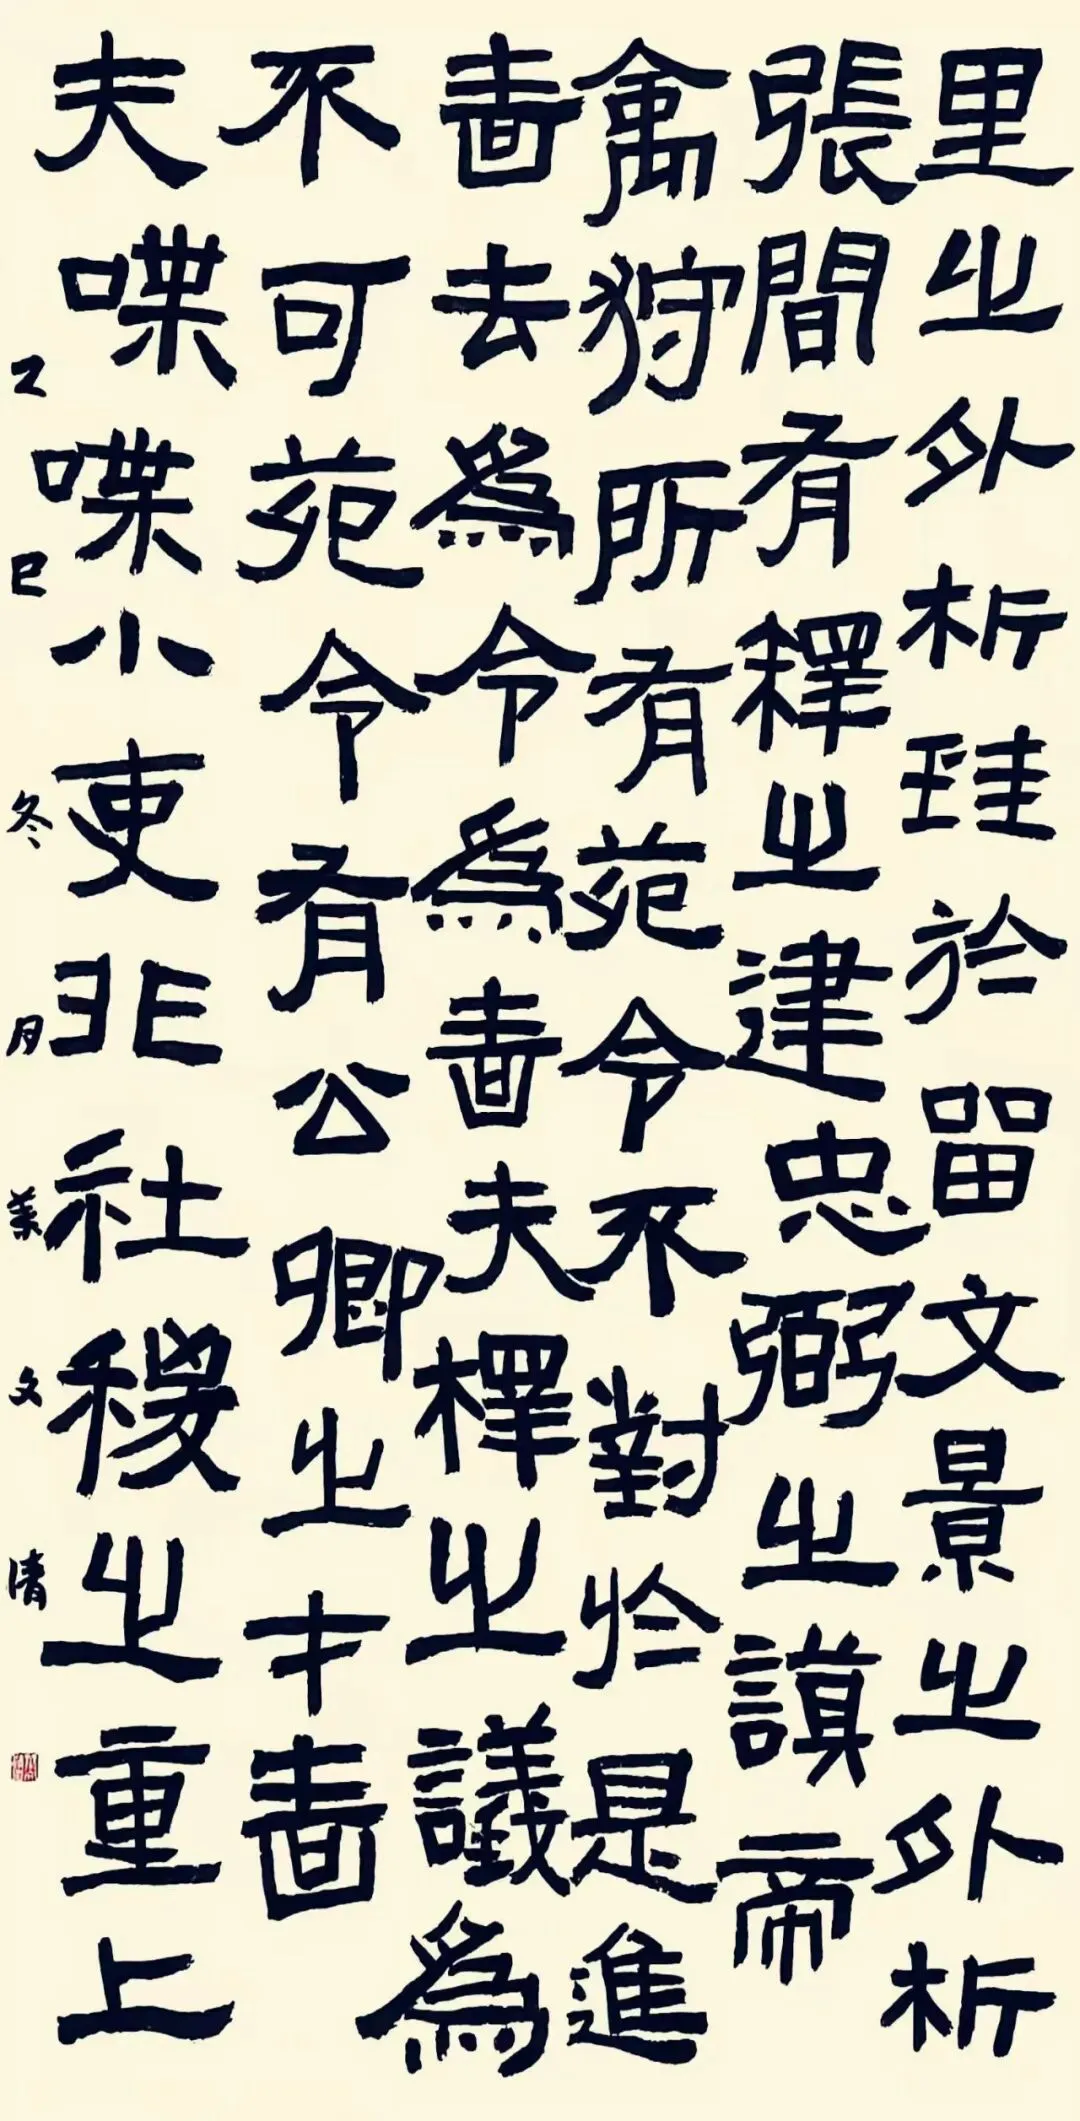 里之外析珪於留文景之外析
張間有釋之建忠弼之謨帝
禽狩所有苑令不對於是進
嗇去爲令爲嗇夫釋之議爲
不可苑令有公卿之才嗇
夫喋喋小吏非社稷之重上
乙巳冬月文清